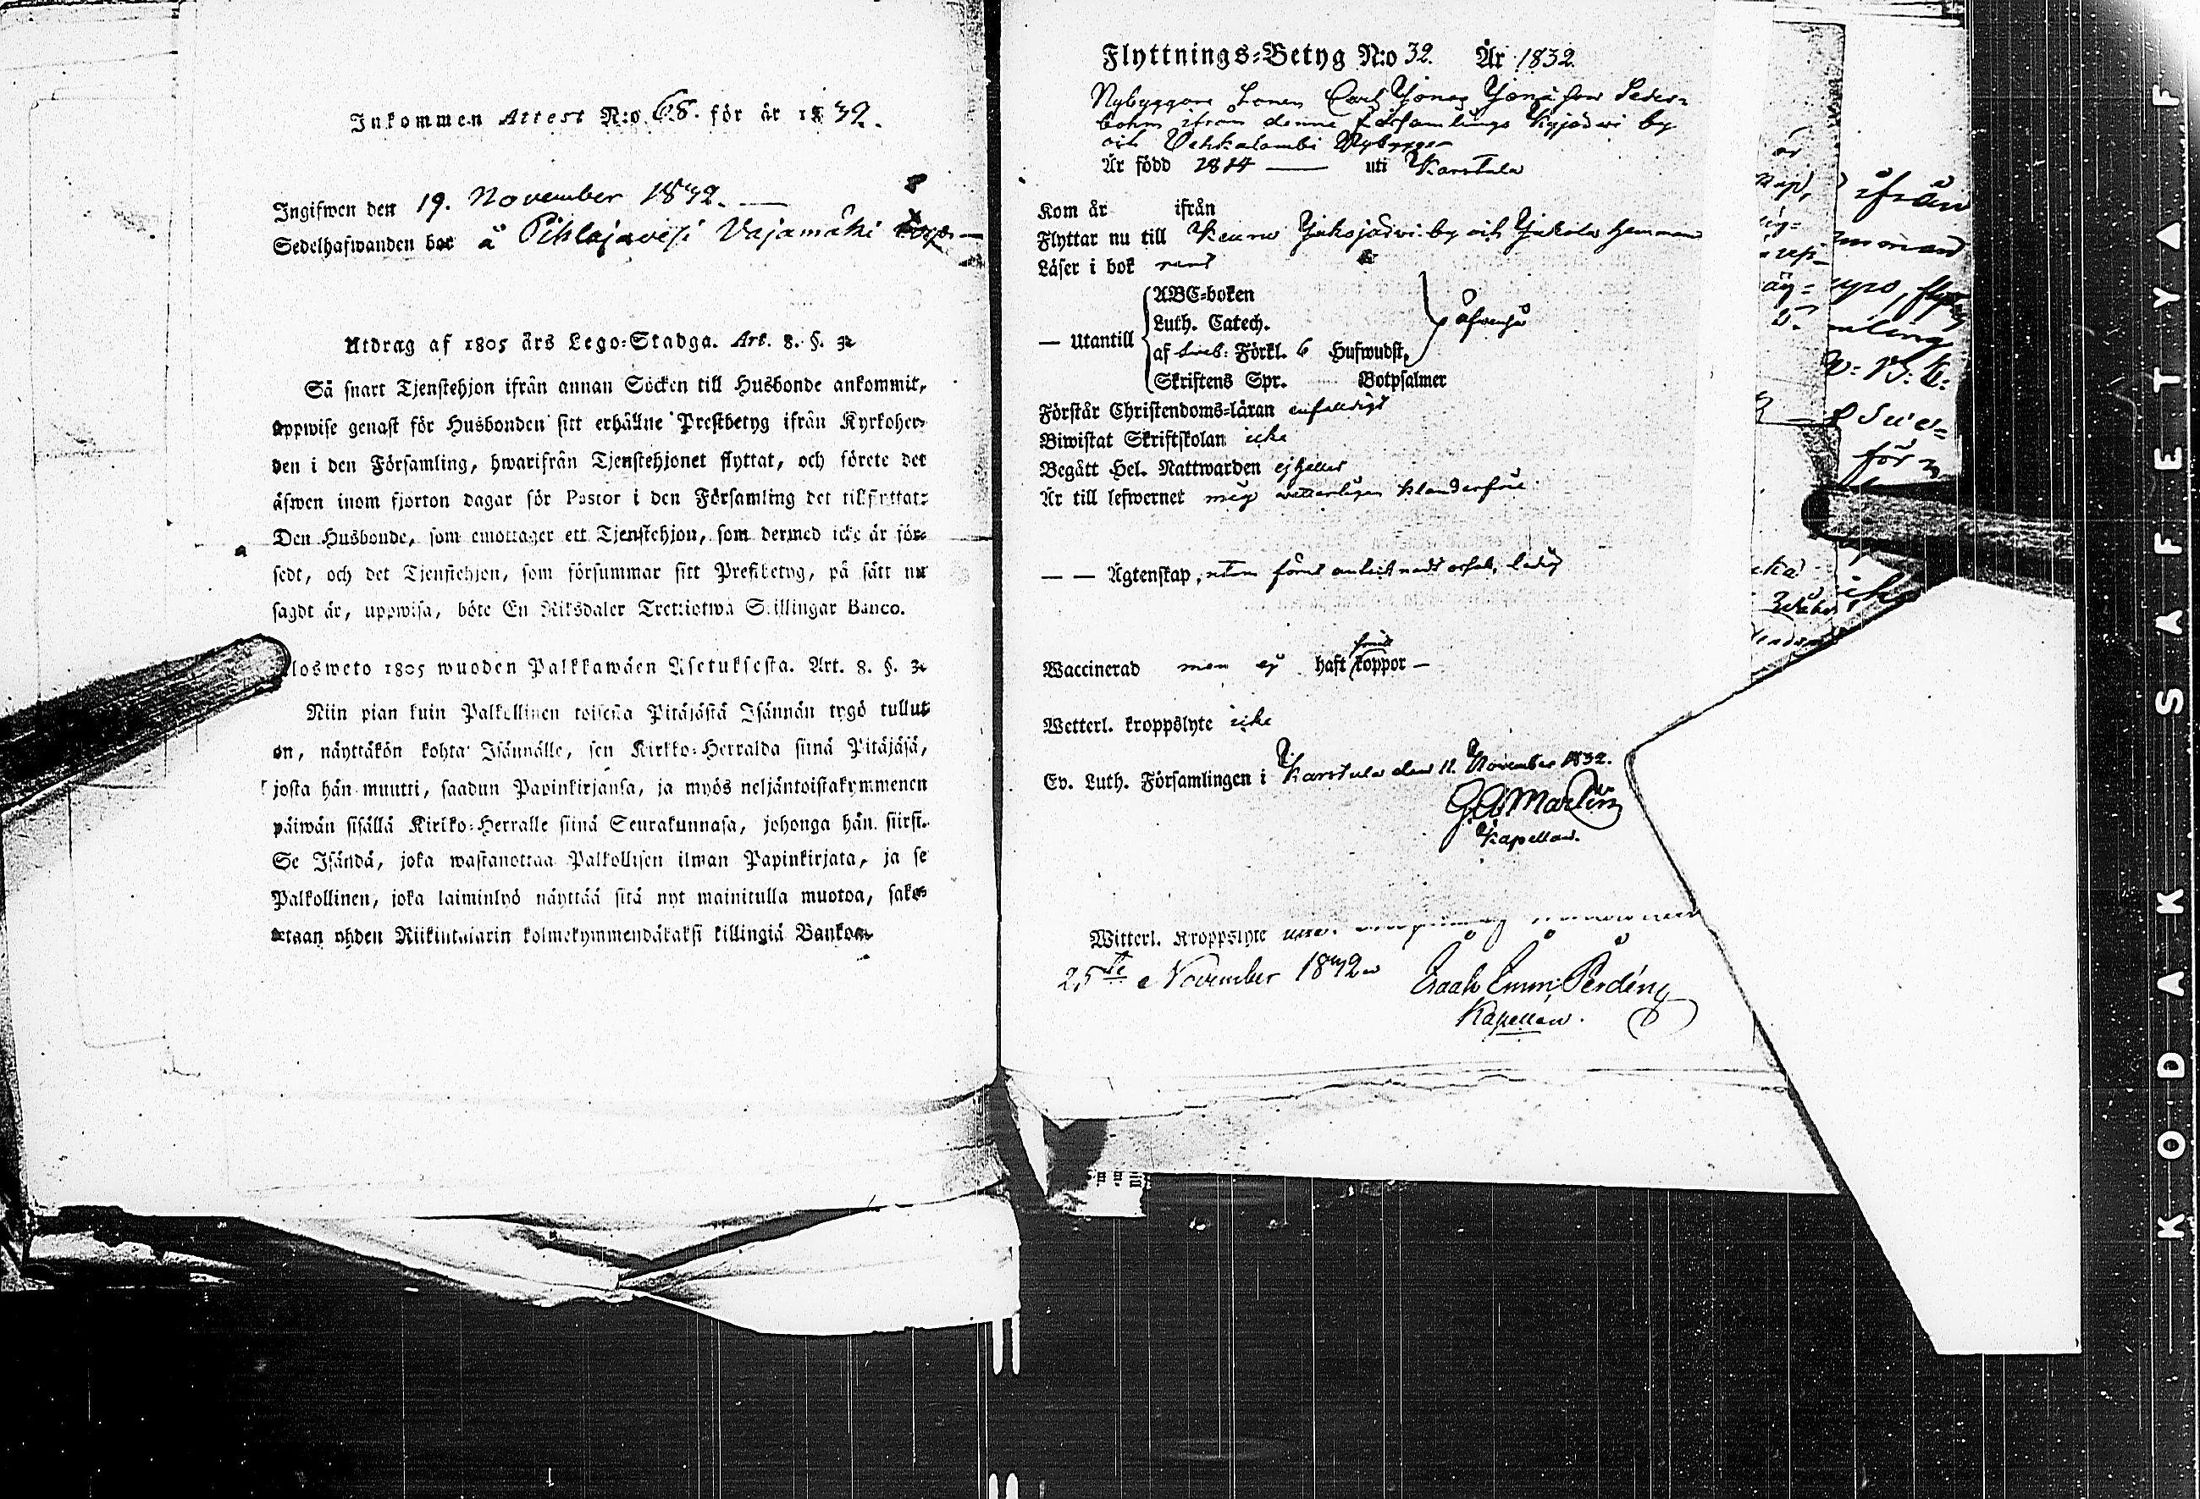 Inkommen Attest N:o 68. för år 1832.
Ingifwen den 19. November 1832.
Sedelhafwanden bor å Pihlajavesi Vajamäki
Utdrag af 1805 års Lego-Stadga. Art. 8. §. 3.
Så snart Tjenstehjon ifrån annan Socken till Husbonde ankommit,
uppwise genast för Husbonden sitt erhållne Prestbetyg ifrån Kyrkoher-
den i den Församling, hwarifrån Tjenstehjonet flyttat, och förete det
äfwen inom fjorton dagar för Pastor i den Församling det tillflyttat:
Den Husbonde, som emottager ett Tjenstehjon, som dermed icke är för-
sedt, och det Tjenstehjon, som försummar sitt Prestbetyg, på sätt nu
sagdt är, uppwisa, böte En Riksdaler Trettiotwå Skillingar Banco.
Ulosweto 1805 wuoden Palkkawäen Asetuksesta. Art. 8. §. 3.
Niin pian kuin Palkollinen toisesta Pitäjästä Isännän tygö tullut
on, näyttäkön kohta Isännälle, sen Kirkko-Herralda siinä Pitäjäsä,
josta hän muutti, saadun Papinkirjansa, ja myös neljäntoistakymmenen
päiwän sisällä Kirkko-Herralle siinä Seurakunnasa, johonga hän siirsi.
Se Isändä, joka wastanottaa Palkollisen ilman Papinkirjata, ja se
Palkollinen, joka laiminlyö näyttää sitä nyt mainitulla muotoa, sako-
tetaan yhden Riikintalarin kolmekymmendäkaksi killingiä Bankoa.
Flyttnings-Betyg N:o 32. År 1832.
Nybyggare Sonen Carl Jonas Jonasson Seder-
bohm ifrån denne Församlings Kyjärvi by
och Vehkalambi Nybygge
Är född 1814 — uti Karstula
Kom år ifrån
Flyttar nu till Keuru Jukojärvi by och Jukola hemman
Läser i bok rent
— Utantill
ABC-boken
Luth. Catech.
af Sveb: Förkl. 6 Hufwudst.
Skriftens Spr. Botpsalmer
äfwenså
Förstår Christendoms-läran enfalldigt
Biwistat Skriftskolan icke
Begått Hel. Nattwarden ej heller
Är till lefwernet mig vetterligen klanderfri
— — Ägtenskap, ledig
Waccinerad men ej haft koppor —
Wetterl. kroppslyte icke
Ev. Luth. Församlingen i Karstula den 11. November 1832.
G. A. Martin
Kapellan.
Witterl. Kroppslyte
25te November 1832
Isaak Emm: Perdén
Kapellan.
ifrån
för
KODAK SAFETY F